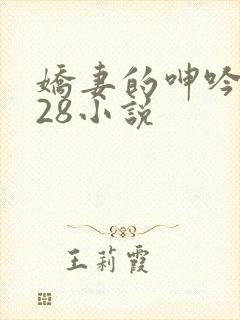 嬌妻的呻吟
28小説
王莉霞